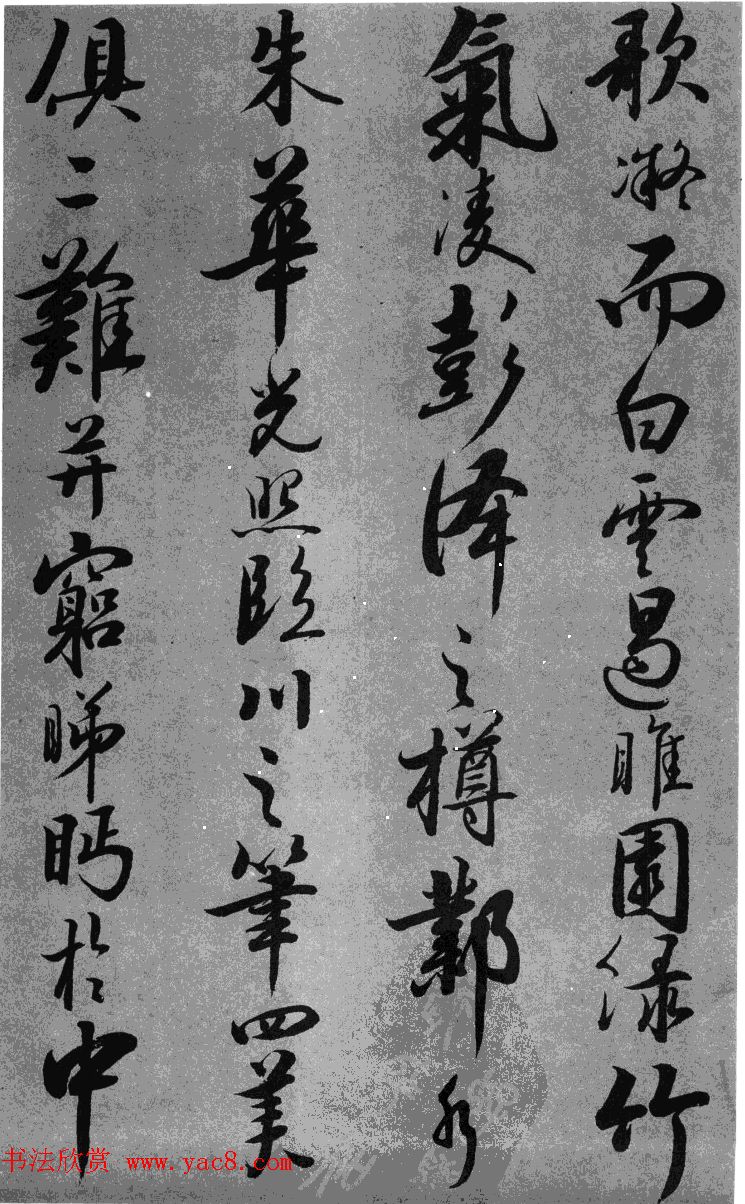 歌凝而白雲遏睢園緑竹
氣凌彭澤之樽鄴水
朱華光照臨川之筆四美
俱二難并窮睇眄於中
书法欣赏 www.yac8.com